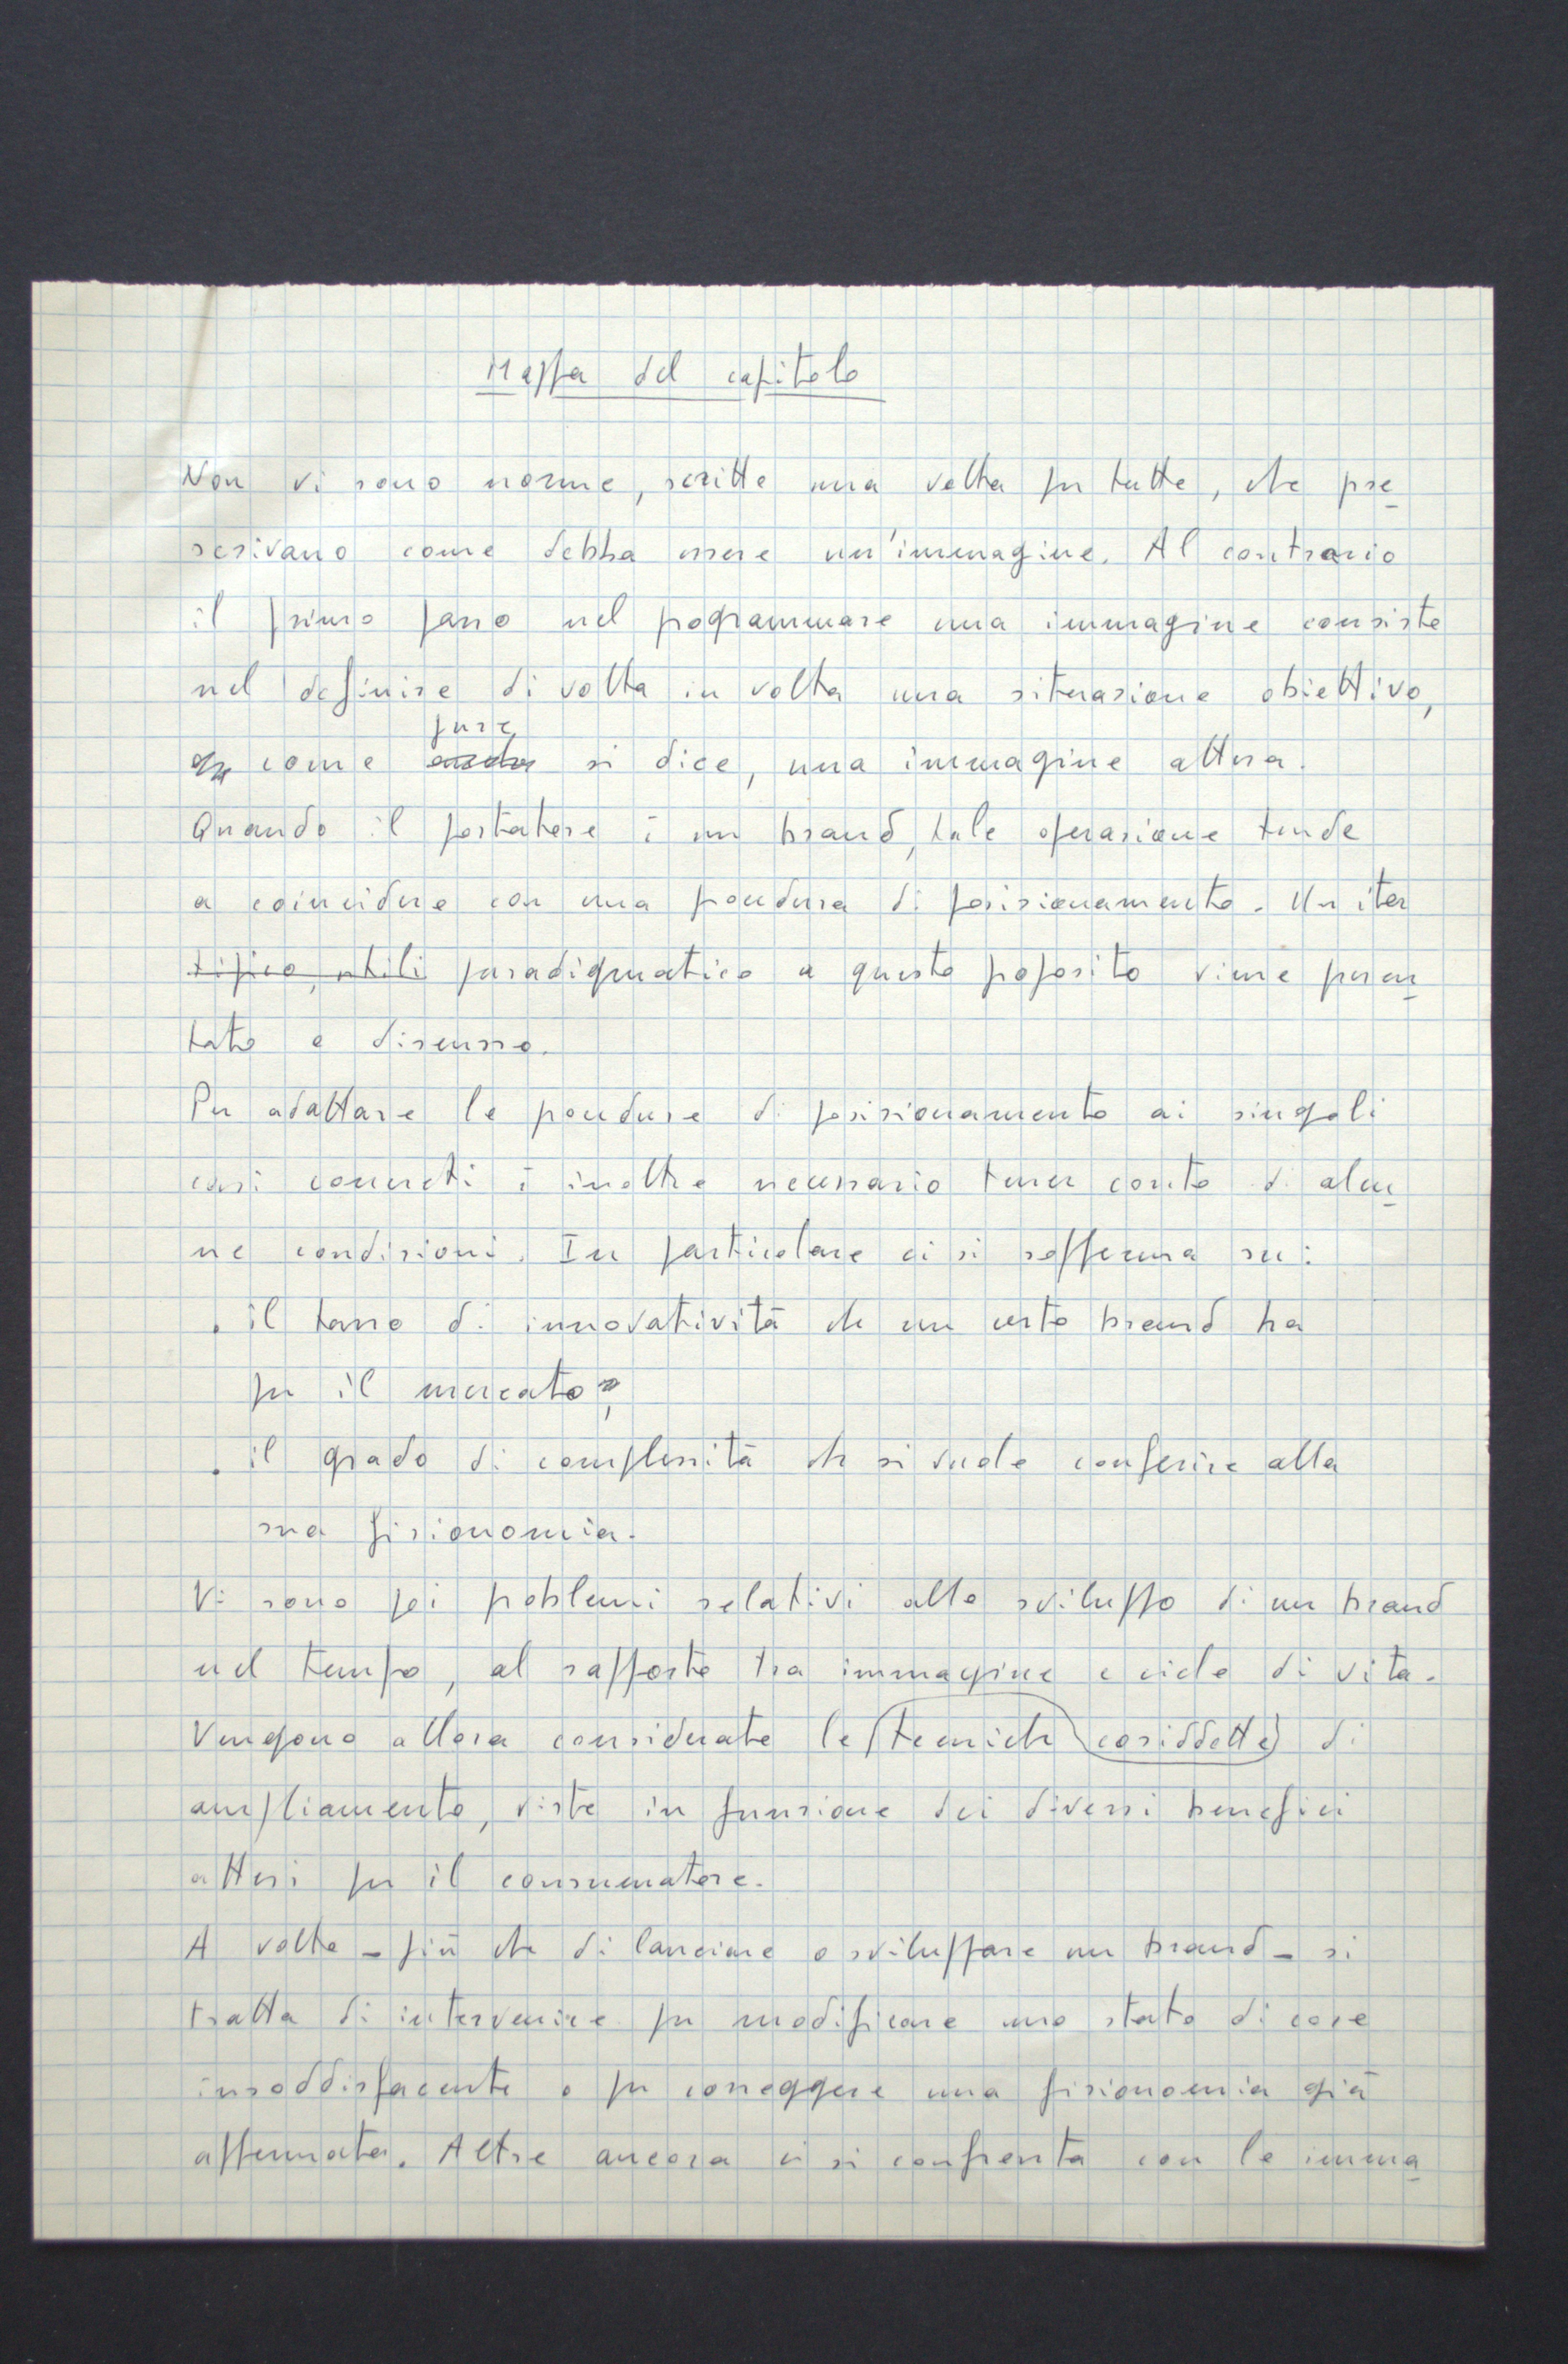 Mappa del capitolo
Non vi sono norme, scritte una volta per tutte, che pre
scrivano come debba essere un'immagine. Al contrario
il primo passo nel programmare una immagine consiste
nel definire di volta in volta una situazione obiettivo,
pure
come anche si dice, una immagine attesa.
Quando il portatore è un brand, tale operazione tende
a coincidere con una procedura di posizionamento. Un iter
tipico, utili paradigmatico a questo proposito viene presen
tato e discusso.
Per adattare le procedure di posizionamento ai singoli
casi concreti è inoltre necessario tener conto di alcu
ne condizioni. In particolare ci si sofferma su:
. il tasso di innovatività che un certo brand ha
per il mercato;
. il grado di complessità che si vuole conferire alla
sua fisionomia.
Vi sono poi problemi relativi allo sviluppo di un brand
nel tempo, al rapporto tra immagine e ciclo di vita.
Vengono allora considerate le tecniche cosiddette di
ampliamento, viste in funzione dei diversi benefici
attesi per il consumatore.
A volte - più che di lanciare o sviluppare un brand - si
tratta di intervenire per modificare uno stato di cose
insoddisfacente o per correggere una fisionomia già
affermata. Altre ancora ci si confronta con le imma